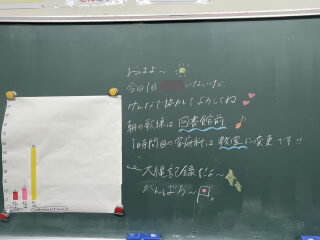 おはよ〜
今日1日 いないけど、
みんなで協力してよろしくね
朝の歌練は図書館前
1時間目の家庭科は教室に変更です!!
大縄記録だな〜
がんばろ〜